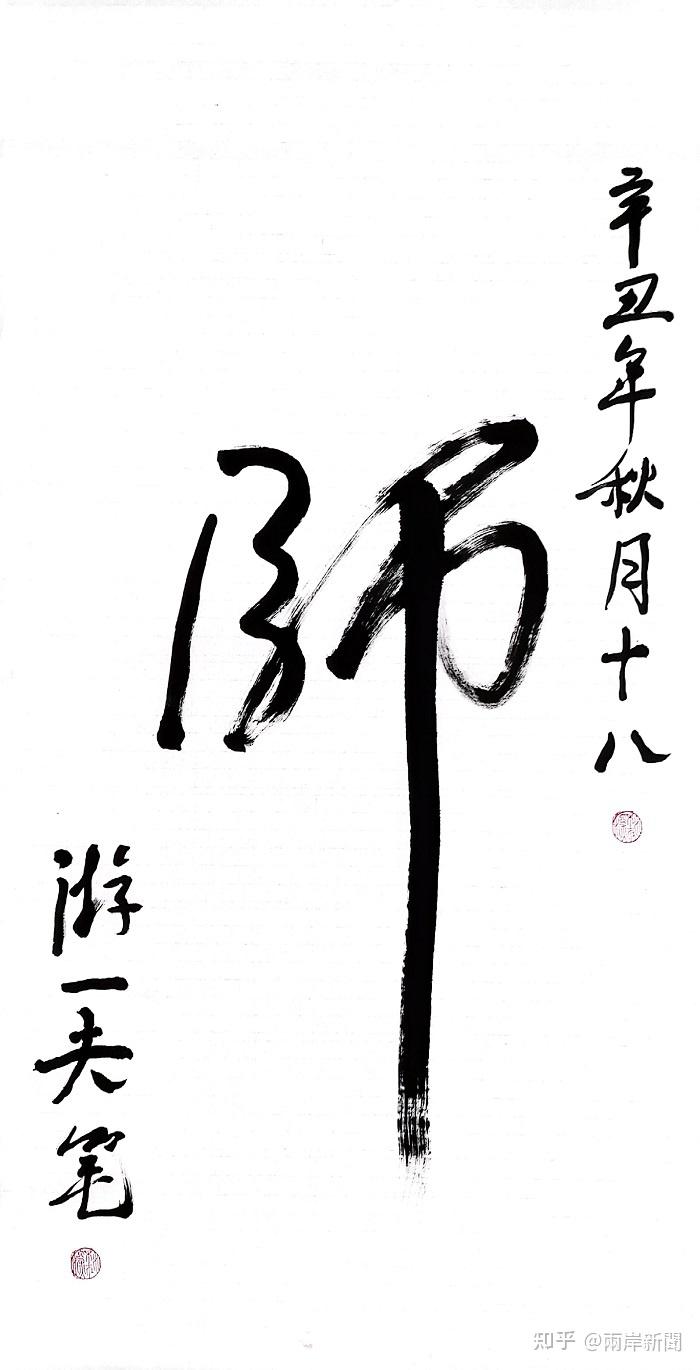 辛丑年秋月十八
师
游一夫笔
知乎 @兩岸新聞